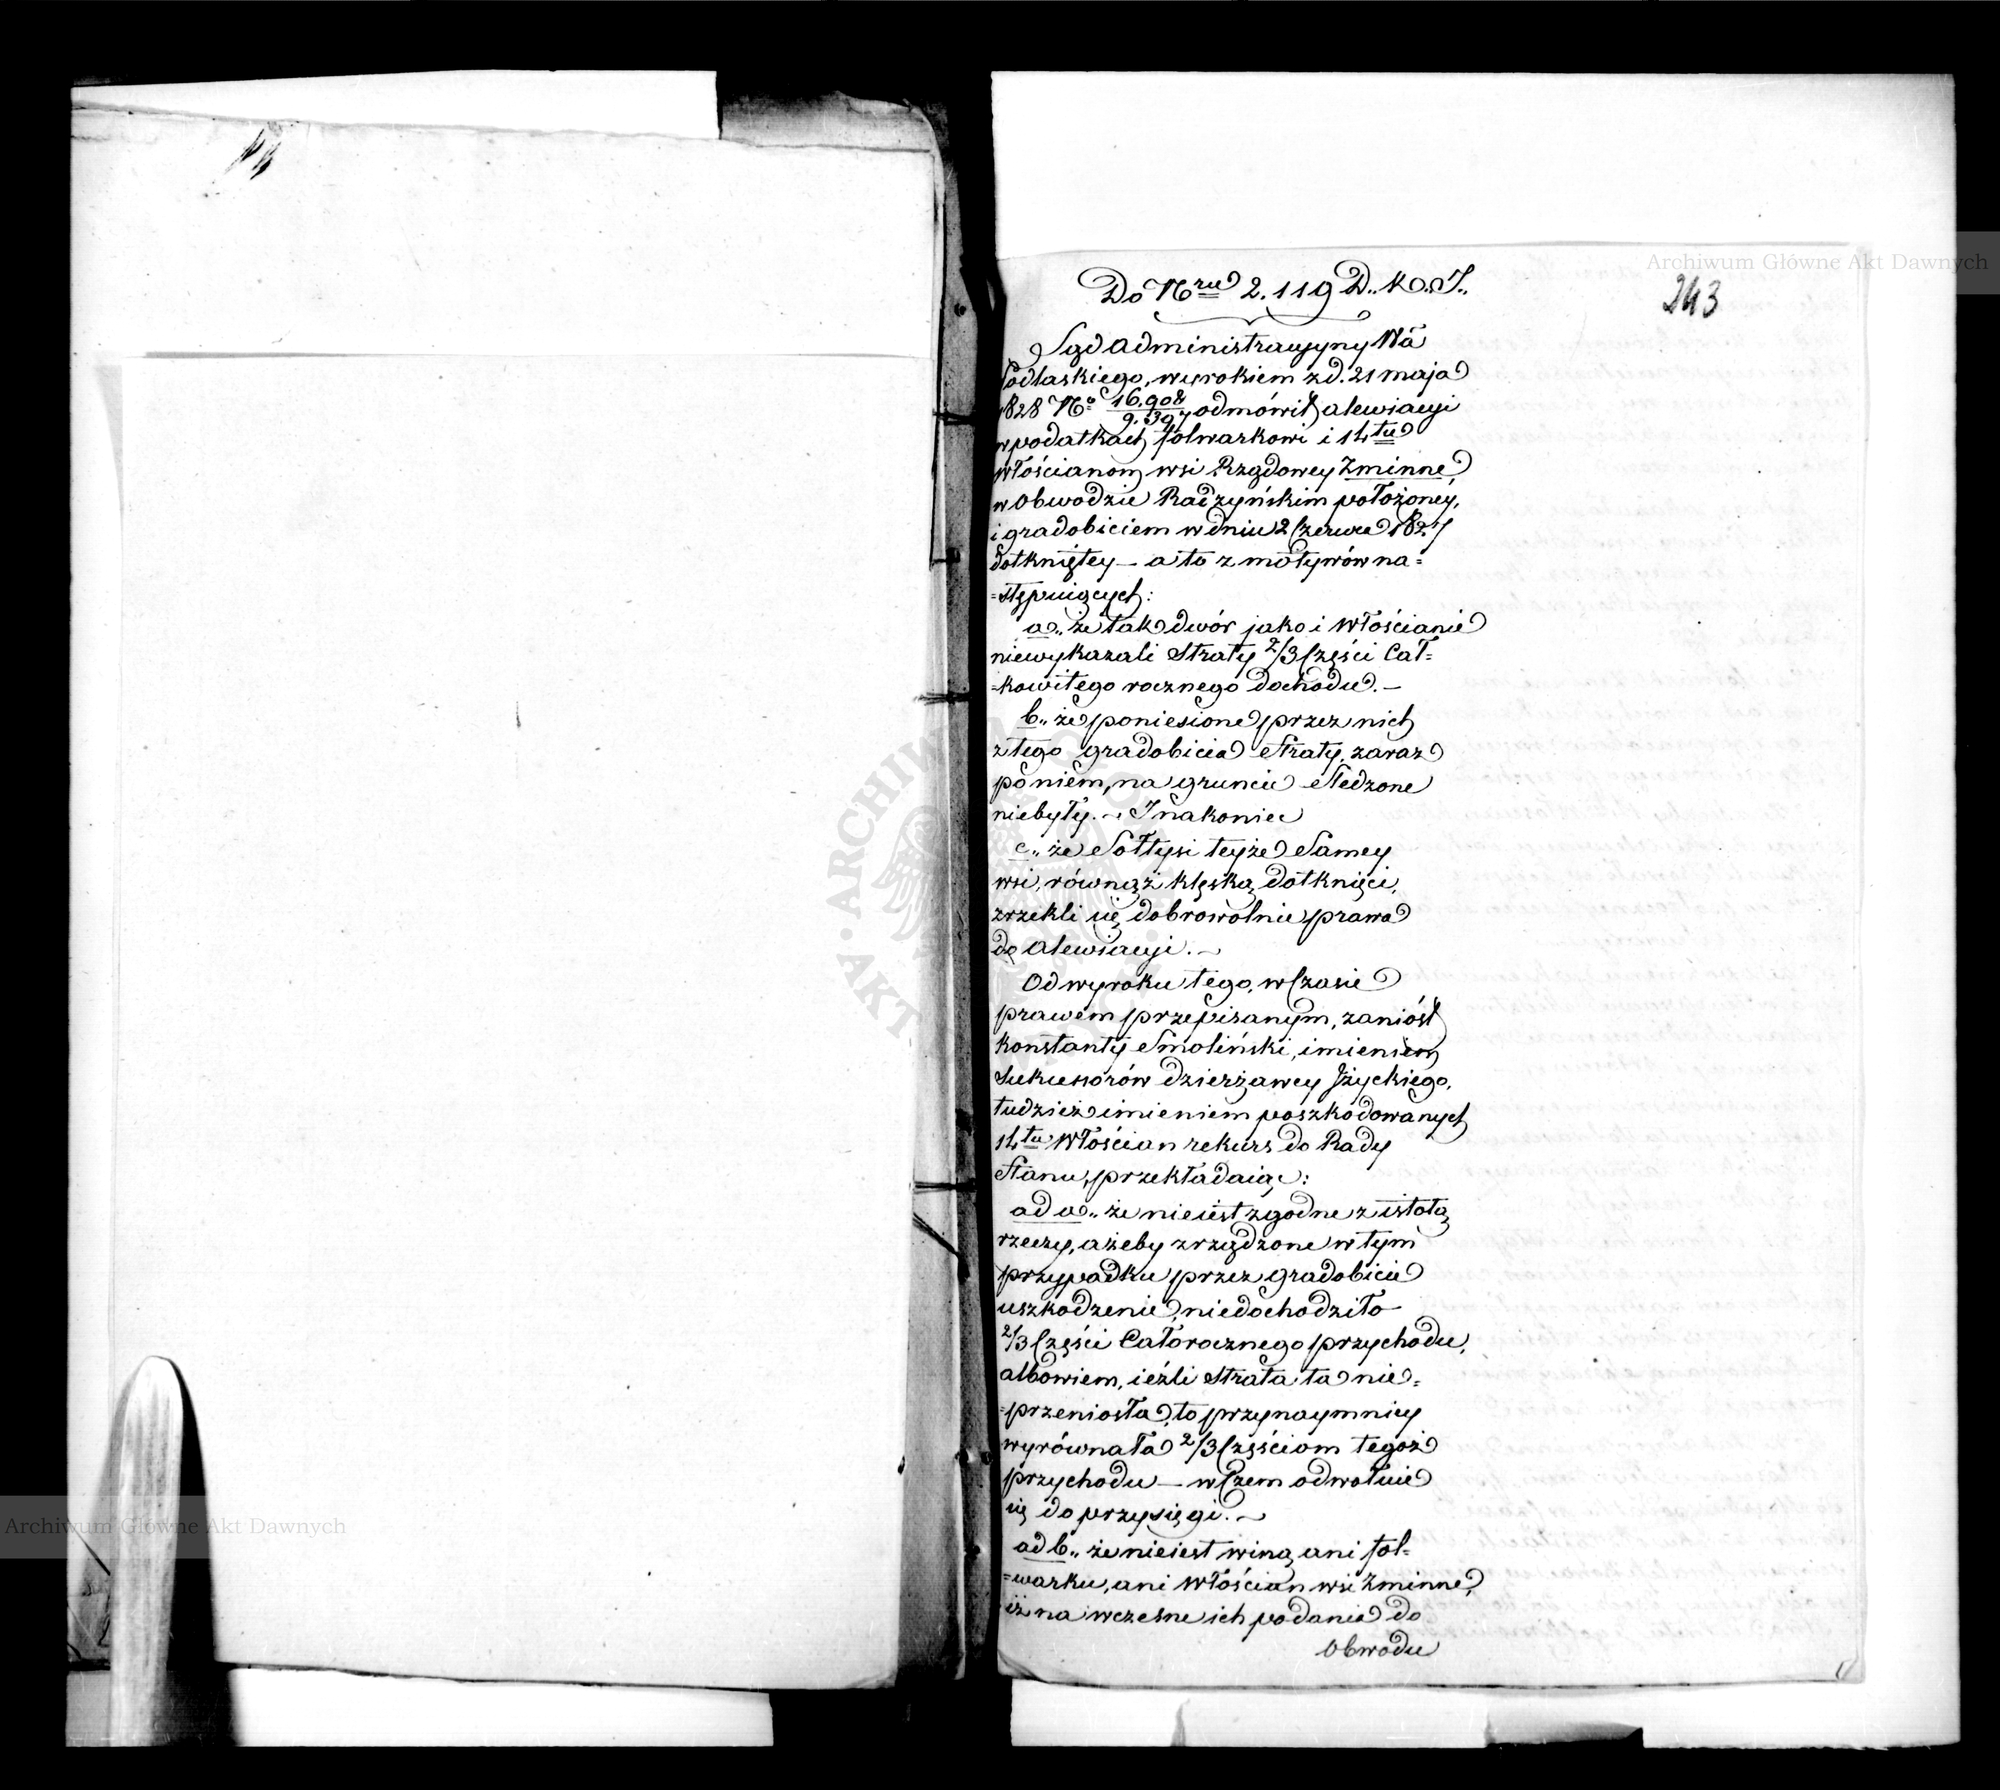 Archiwum Główne Akt Dawnych
243
Do Nru 2.119 D.. K..J..
Sąd administracyiny Wā
Podlaskiego, wyrokiem z d. 21 maja
1828 No 16.908/9.397 odmówił alewiacyi
w podatkach folwarkowi i 14tu
włościanom wsi Rządowey Żminne,
w Obwodzie Radzyńskim położoney,
i gradobiciem w dniu 2 Czerwca 1827
dotkniętey — a to z motywów na=
=stępuiących:
a.. że tak dwór jako i Włościanie
niewykazali straty 2/3 Części Cał=
=kowitego rocznego dochodu. —
b.. że poniesione przez nich
z tego gradobicia straty, zaraz
po niem, na gruncie śledzone
niebyły. ~ I nakoniec
c.. że Sołtysi teyże samey
wsi, równąż klęską dotknięci,
zrzekli się dobrowolnie prawa
do alewiacyi. ~
Od wyroku tego, w Czasie
prawem przepisanym, zaniósł
Konstanty Smoliński, imieniem
Sukcessorów dzierżawcy Iżyckiego,
tudzież imieniem poszkodowanych
14tu Włościan rekurs do Rady
Stanu, przekładaiąc:
ad a.. że nieiest zgodne z istotą
rzeczy, ażeby zrządzone w tym
przypadku przez gradobicie
uszkodzenie, niedochodziło
2/3 Części Całorocznego przychodu,
albowiem, ieźli strata ta nie=
=przeniosła, to przynaymniey
wyrównała 2/3 Częściom tegoż
przychodu — w Czem odwołuie
się do przysięgi. ~
ad b.. że nieiest winą ani fol=
=warku, ani Włościan wsi Żminne,
iż na wczesne ich podanie do
Obwodu
ARCHIWUM
AKT
Archiwum Główne Akt Dawnych